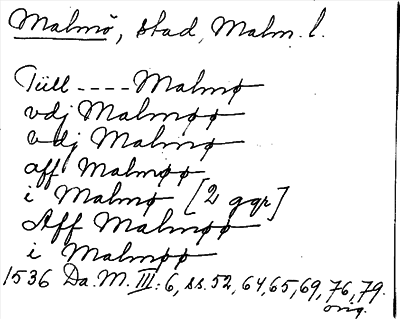 Malmö, stad, Malm. l.
Tüll ---- Malmø
vdj Malmøø
vdj Malmø
aff Malmøø
i Malmø [2 ggr]
Aff Malmøø
i Malmøø
1536 Da. M. III: 6, ss. 52, 64, 65, 69, 76, 79.
orig.